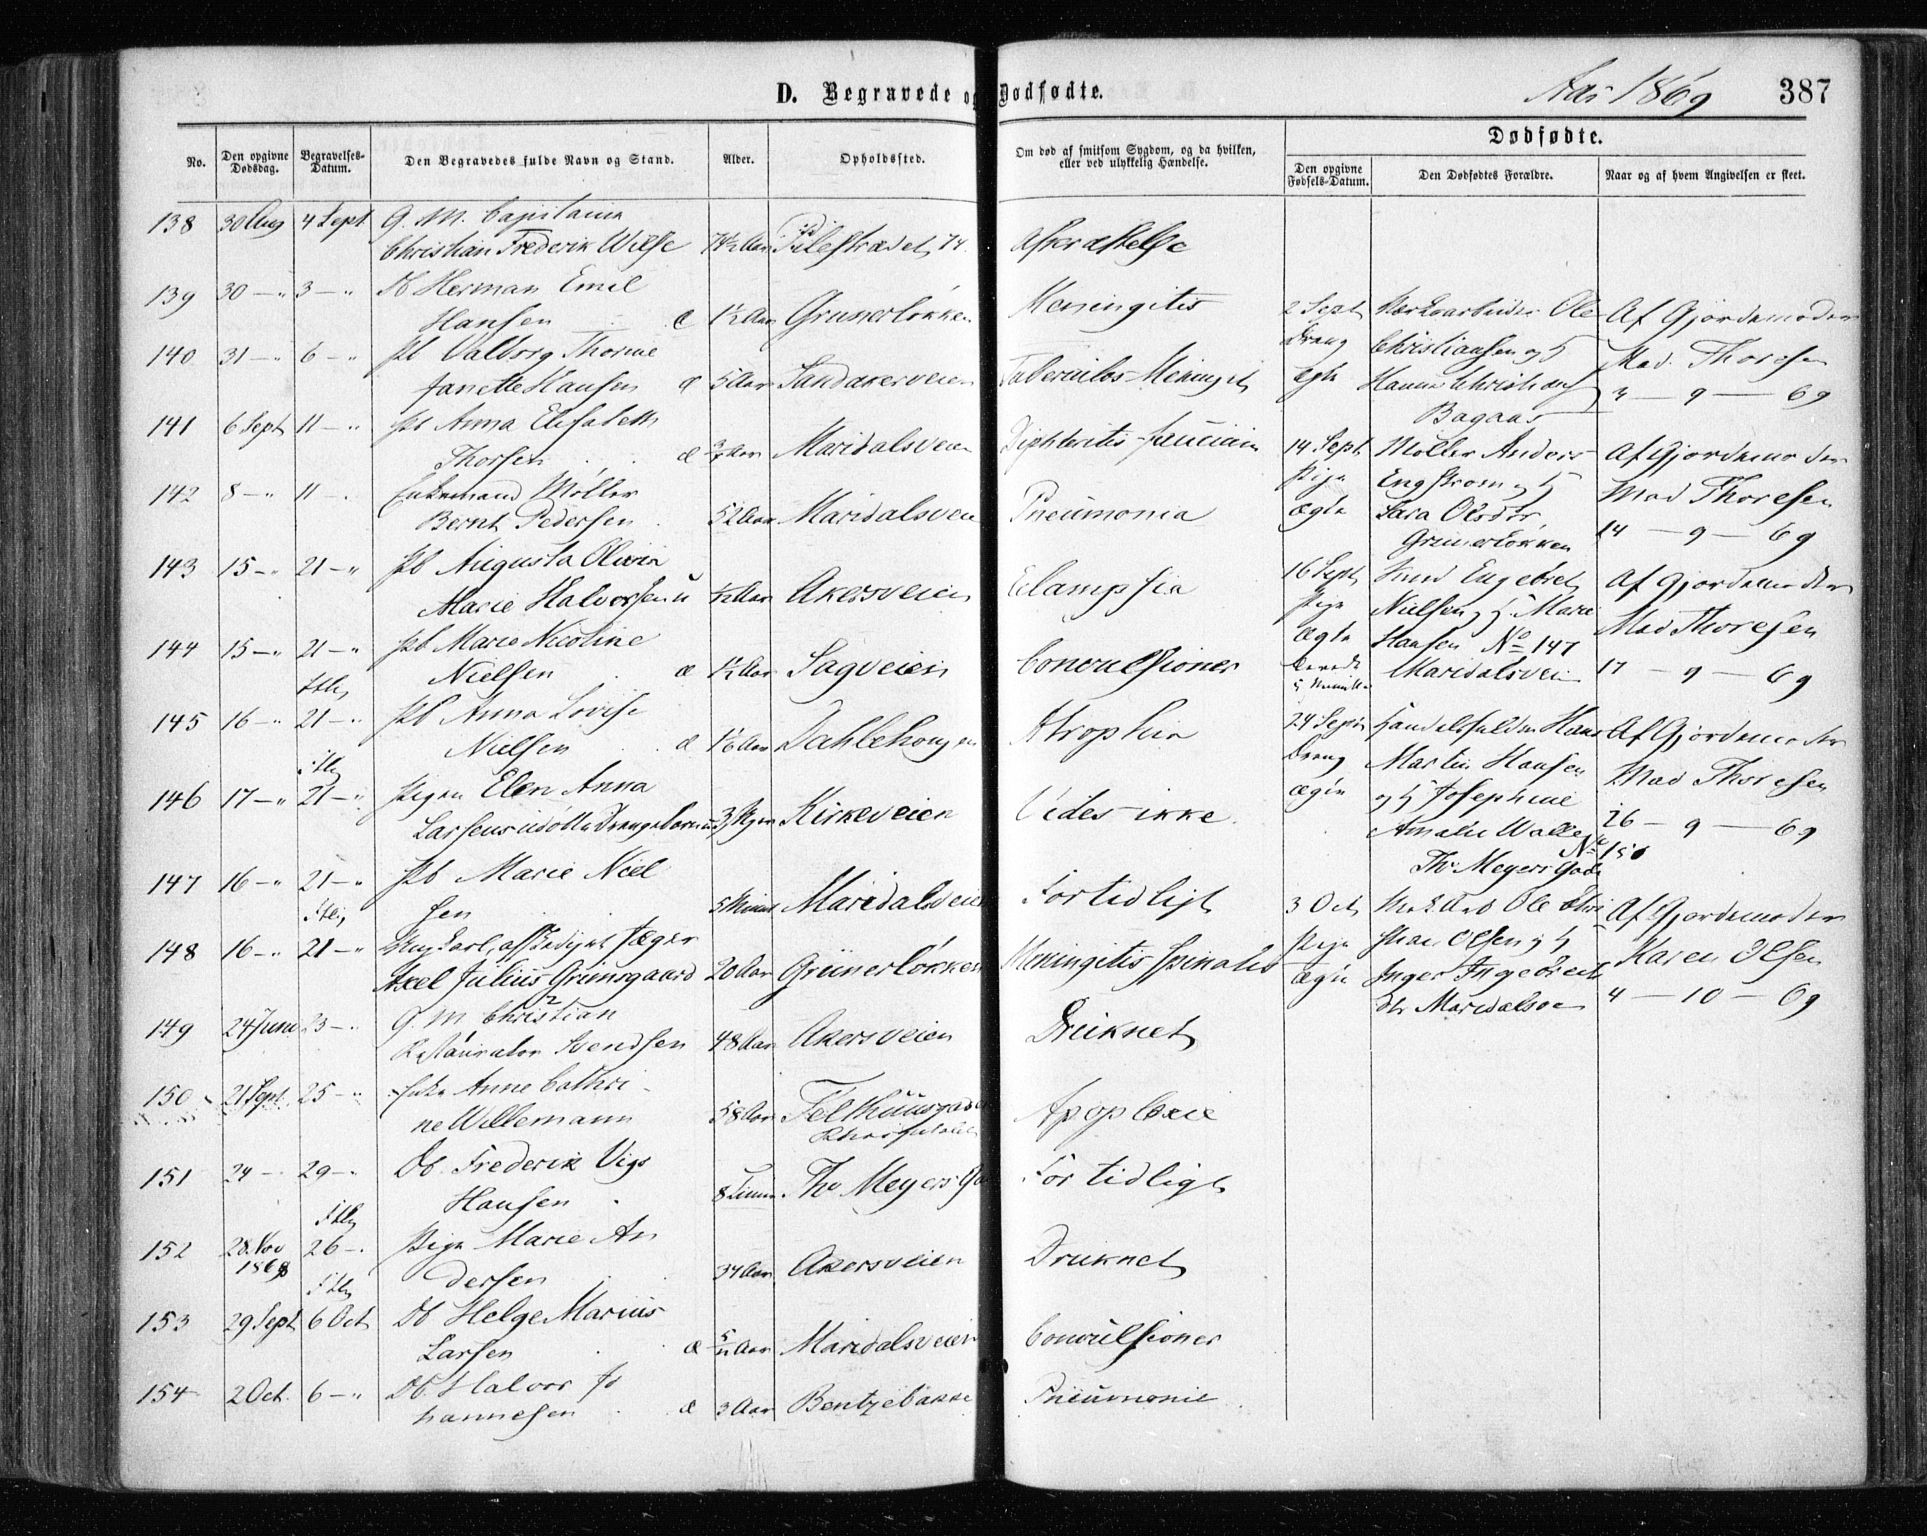 D. Begravede og Dødfødte.
Aar 1869
387
No.
Den opgivne Dødsdag.
Begravelses-Datum.
Den Begravedes fulde Navn og Stand.
Alder.
Opholdssted.
Om død af smitsom Sygdom, og da hvilken, eller ved ulykkelig Hændelse.
Dødfødte.
Den opgivne Fødsels-Datum.
Den Dødfødtes Forældre.
Naar og af hvem Angivelsen er skeet.
138 30 Aug 4 Sept G. M. Capitain
Christian Frederik Wilse 74½ Aar Pilestrædet 74. Afkræftelse
139 30 — " 3 — " Db Herman Emil
Hansen æ 1½ Aar Grunerløkken Meningitis
140 31 — " 6 — " Pb Valborg Thorine
Janette Hansen æ 5 Aar Sandakerveien
141 6 Sept 11 — " Pb Anna Elisabeth
Thorsen æ ¾ Aar Maridalsveien
142 8 — " 11 — " Enkemand Møller
Bernt Pedersen 52 Aar Maridalsveie Pneumonia
143 15 — " 21 — " Pb Augusta Olivia
Marie Halvorsen u Aar Akersveien Eclampsia
144 15 — " 21 — " Pb Marie Nicoline
Nielsen æ 1½ Aar Sagveien Convulsioner
145 16 — " 21 — " Pb Anna Lovise
Nielsen æ Aar Dahlehougen Atrophia
146 17 — " 21 — " Pigen Elen Anna
Larsens udøbte Drengebarn 3 Kirkeveien Vides ikke.
147 16 — " 21 — " Pb Marie Niel
sen 5 Minut Maridalsveien For tidligt
148 16 — " 21 — "
Axel Julius Grimsgaard 20 Aar Grünerløkken Meningitis spinalis
149 24 Juni 23 — " G. M. Christian
Svendsen 48 Aar Akersveien Druknet
150 21 Sept 25 — " Enke Anne Cathri-
ne Willemann 58 Aar Apoplexie
151 24 — 29 — " Db. Frederik Vigo
Hansen 8 Timer Th. Meyers Ga For tidligt
152 28. Nov 1868 26 — " Pige Marie An
dersen 34 Aar Akersveien Druknet
153 29 Sept 6 Oct Db Helge Marius
Larsen æ 5/12 Aar Maridalsveien Convulsioner
154 2 Oct. 6 — " Db. Halvor Jo
hannesen æ 3 Aar Bentzebakke Pneumonie
2 Sept Ole Af Gjordemoder
Dreng Christiansen og H Mad. Thoresen
ægte Hanna 3 — 9 — 69
Bagaas
14 Sept Møller Anders Af Gjordemoder
Pige Engstrom og H Mad Thoresen
ægte Sara Olsdtr 14 — 9 — 69
Grunerløkken
16 Sept Engebret Af Gjordemoder
Pige Nielsen og H. Marie Mad Thoresen
ægte Hansen No 147 17 — 9 — 69
levede 5 Minutter Maridalsvei
24 Sept Hans Af Gjordemoder
Dreng Martin Hansen Mad Thoresen
ægte og H Josephine 26 — 9 — 69
Amalie Walle
No 150
Th. Meyers Gade
3 Oct Ole Af Gjordemoder
Pige Olsen og H Karen Olsen
ægte Inger Ingebret 4 — 10 — 69
dtr Maridalsve